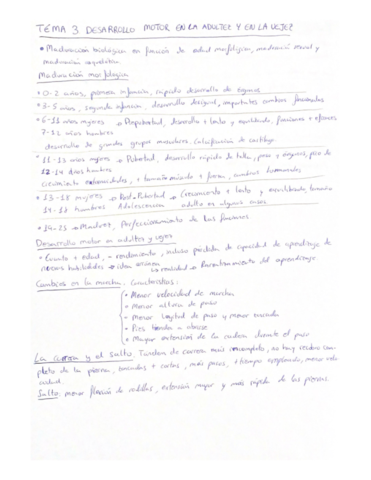 TEMA 3 DESARROLLO MOTOR EN LA ADULTEZ Y EN LA VEJEZ
• Maduración biológica en función de edad morfológica, maduración sexual y
maduración esquelética
Maduración morfológica
• 0-2 años, primera infancia, rápido desarrollo de órganos
• 3-5 años, segunda infancia, desarrollo desigual, importantes cambios funcionales
• 6-11 años mujeres → Prepubertad, desarrollo + lento y equilibrado, funciones + eficaces
7-11 años hombres
desarrollo de grandes grupos musculares, Calcificación de cartílago
• 11-13 años mujeres → Pubertad, desarrollo rápido de talla, peso y órganos, pico de
12-14 años hombres
crecimiento extremidades, + tamaño miembros + fuerza, cambios hormonales
• 13-18 mujeres → Post-Pubertad → Crecimiento + lento y equilibrado, tamaño
14-17 hombres Adolescencia adulto en algunos casos
• 19-25 → Madurez, Perfeccionamiento de las funciones
Desarrollo motor en adultos y vejez
• Cuanto + edad, - rendimiento, incluso pérdida de capacidad de aprendizaje de
nuevas habilidades → idea errónea
↳ realidad → Ralentizamiento del aprendizaje
Cambios en la marcha. Características:
• Menor velocidad de marcha
• Menor altura de paso
• Menor longitud de paso y menor zancada
• Pies tienden a abrirse
• Mayor extensión de la cadera durante el paso
La carrera y el salto: Tienden de carrera más incompleto, no hay recobro com-
pleto de la pierna, zancadas + cortas, más pasos, + tiempo apoyando, menor velo-
cidad.
Salto: menor flexión de rodillas, extensión mayor y más rápida de las piernas.